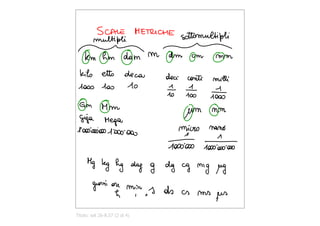 SCALE METRICHE
multipli sottomultipli
km hm dam m dm cm mm
kilo etto deca deci centi milli
1000 100 10 1/10 1/100 1/1000
Gm Mm µm nm
Giga Mega micro nano
1'000'000'000 1'000'000 1/1'000'000 1/1'000'000'000
Mg kg hg dag g dg cg mg µg
giorni ore min s ds cs ms µs
h ' "